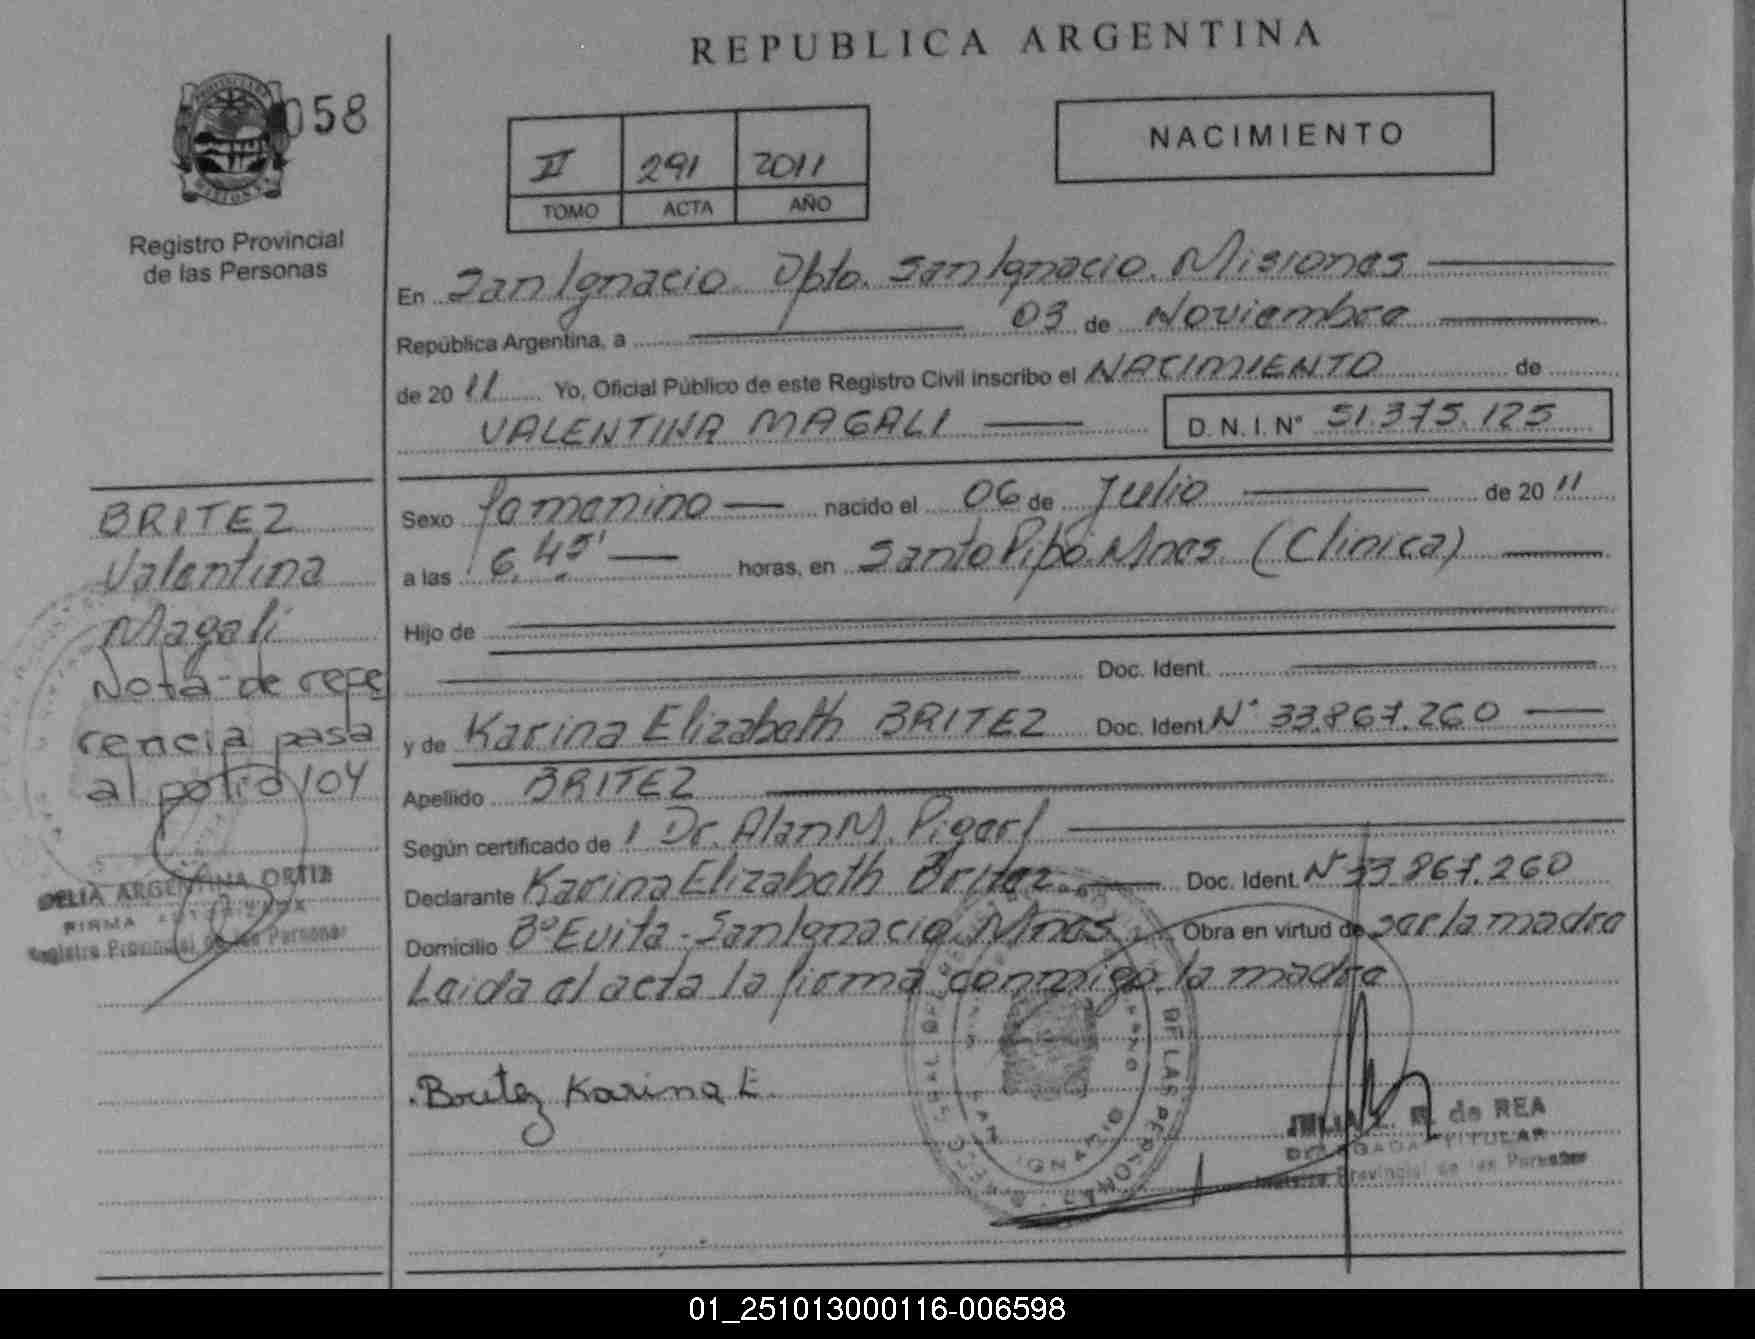 REPUBLICA ARGENTINA
058
NACIMIENTO
II 291 2011
TOMO ACTA AÑO
Registro Provincial
de las Personas
En San Ignacio Dpto. San Ignacio. Misiones
República Argentina, a 03 de Noviembre
de 2011 Yo, Oficial Público de este Registro Civil inscribo el NACIMIENTO de
VALENTINA MAGALI D.N.I. N° 51.375.125
BRITEZ
Valentina
Magali
Nota de refe
rencia pasa
al folio 104
DELIA ARGENTINA ORTIZ
FIRMA AUTORIZADA
Registro Provincial de las Personas
Sexo femenino nacido el 06 de Julio de 2011
a las 6,45' horas, en Santo Pipó. Mnes. (Clinica)
Hijo de
Doc. Ident.
y de Karina Elizabeth BRITEZ Doc. Ident. N° 33.867.260
Apellido BRITEZ
Según certificado de Dr. Alan M.
Declarante Karina Elizabeth Britez Doc. Ident. N° 33.867.260
Domicilio B° Evita - San Ignacio. Mnes Obra en virtud de ser la madre
Leida el acta la firma conmigo la madre
Britez Karina E.
de REA
DELEGADA TITULAR
Registro Provincial de las Personas
01_251013000116-006598